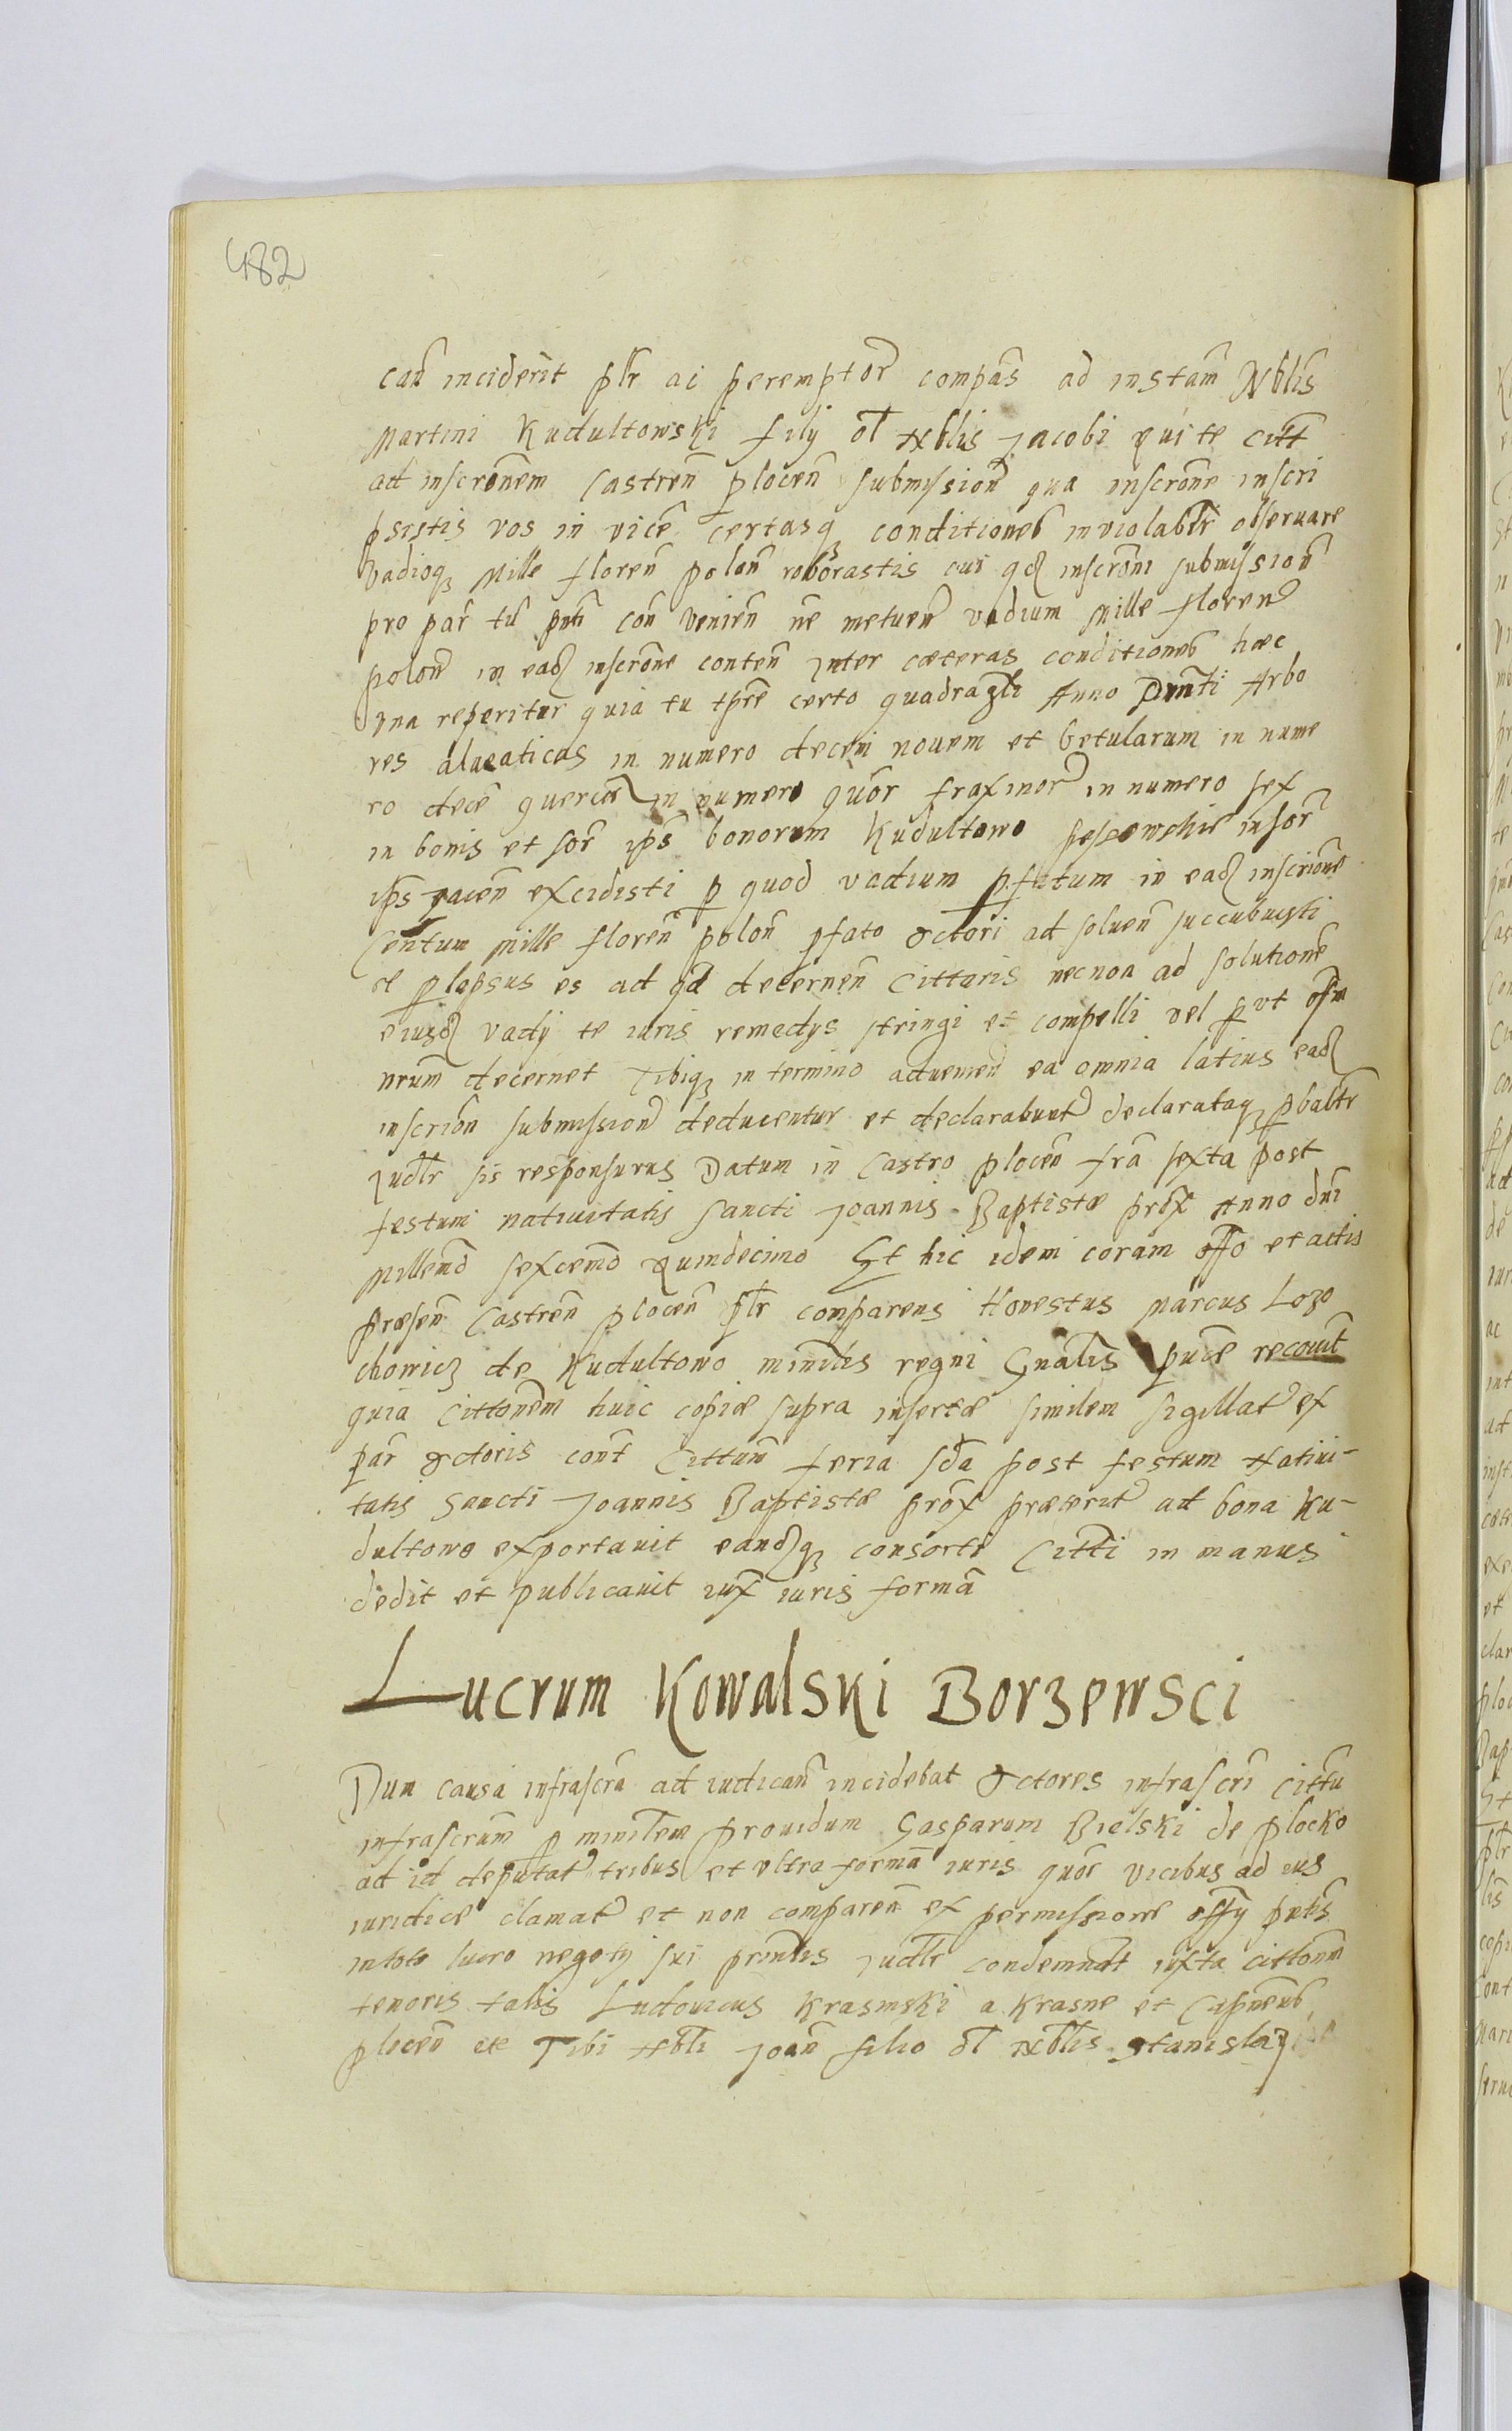 482
cau̅ inciderit plr̅ ac peremptor̅ compas̅ ad instam̅ Nblis̅
Martini Kudultowski filij ol̅ Nblis Jacobi qui te Citt̅
ad inscronem̅ Castren̅ plocen̅ submission̅ qua inscrone̅ inscri
psistis vos in vice̅ certasq₃ conditiones inviolabtr̅ observare
Vadioq₃ Mille floren̅ polon̅ roborastis cui qd inscroni̅ submission̅
pro par̅ tu̅ pnti̅ con̅ venien̅ ne̅ metuen̅ vadium Mille floren̅
polon̅ in ead inscrone̅ conten̅ Inter cæteras conditiones hæc
una reperitur quia tu tpre̅ certo quadragli̅ Anno Pnnti̅ Arbo
res in numero decem novem et betularum in nume
ro dece̅ in numero quor̅ fraxinor̅ in numero sex
in bonis et sor̅ ips̅ bonorum Kudultowo insor̅
ips̅ jacen̅ excidisti p quod vadium pfatum in ead inscrione̅
Centum Mille floren̅ polon̅ pfato Actori ad soluen̅ succubuisti
et plapsus es ad qd decernen̅ Cittaris necnon ad solutione̅
eiusd vadij te iuris remedys stringi et compelli vel put offm̅
nrum̅ decernet Tibiq₃ in termino advenien̅ ea omnia latius ead
inscrion̅ submission̅ deducentur et declarabunt declarataq₃ pbaltr̅
Judlr̅ sis responsurus Datum in Castro plocen̅ fra̅ sexta post
festum nativitatis sancti Joannis Baptistæ prox̅ Anno dni̅
Millemo̅ sexcemo̅ quindecimo Et hic idem coram offo̅ et actis
præsen̅ Castren̅ plocen̅ plr̅ comparens Honestus Marcus Lozo
chowicz de Kudultowo minilis̅ regni Gnalis̅ puce̅ recouit̅
quia Cittonem̅ huic copiæ supra insertæ similem sigillat ex
par̅ Actoris cont̅ Cittum̅ feria sda̅ post festum Nativi-
tatis Sancti Joannis Baptistæ prox̅ præterit ad bona Ku-
dultowo exportavit eandq₃ consorti Citti̅ in manus
dedit et publicavit iux̅ iuris forma̅
Lucrum Kowalski Borzewsci
Dum causa infrascra̅ ad iudican̅ incidebat Actores infrascri̅ Cittu̅
infrascrum̅ p minilem̅ providum Gasparum Bielski de Plocko
ad id deputat tribus et ultra forma̅ iuris quor̅ vicibus ad ius
iuridice clamat et non comparen̅ ex permissione offy̅ pntis̅
intoto lucro negotij sui prinlis̅ Judlr̅ condemnat̅ iuxta cittonm̅
tenoris talis Ludovicus Krasinski a Krasne et Capneus̅
plocen̅ etc Tibi Nbli̅ Joan̅ filio ol̅ Nblis̅ Stanislaj